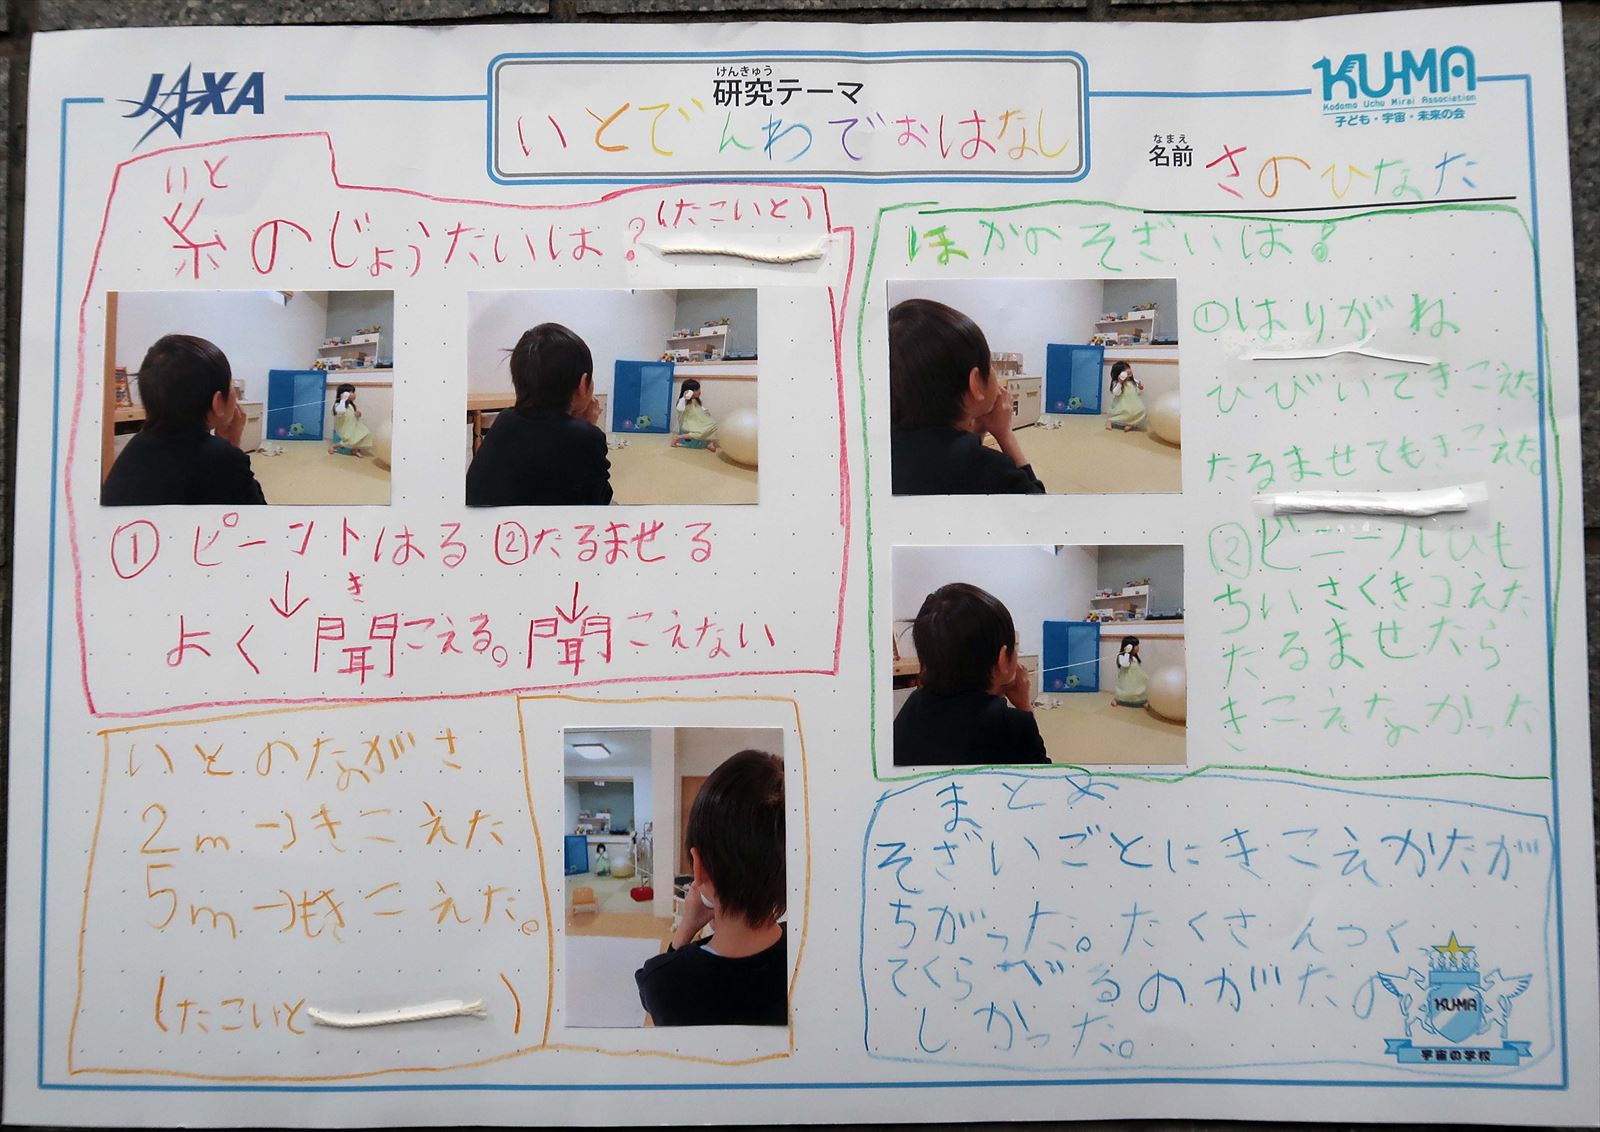 JAXA
けんきゅう
研究テーマ
いとでんわでおはなし
KU-MA
Kodomo Uchu Mirai Association
子ども・宇宙・未来の会
なまえ
名前 さのひなた
いと
糸のじょうたいは？(たこいと)
①ピーントはる ②たるませる
↓ ↓
き
よく聞こえる。聞こえない
いとのながさ
2m→きこえた
5m→もきこえた。
(たこいと )
ほかのそざいは？
①はりがね
ひびいてきこえた。
たるませてもきこえた。
②ビニールひも
ちいさくきこえた
たるませたら
きこえなかった
まとめ
そざいごとにきこえかたが
ちがった。たくさんつく
てくらべるのがたの
しかった。
KU-MA
宇宙の学校